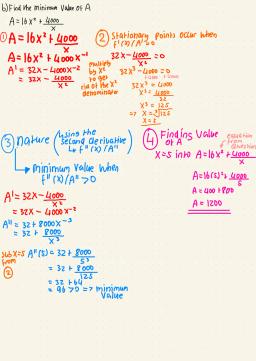 b) Find the minimum value of A
A = 16x² + 4000/x
① A = 16x² + 4000/x
A = 16x² + 4000x⁻¹
A' = 32x - 4000x⁻²
= 32x - 4000/x²
② Stationary points occur when f'(x)/A' = 0
32x - 4000/x² = 0
multiply by x² to get rid of the x² denominator
32x³ - 4000 = 0
+4000 +4000
32x³ = 4000
x³ = 4000/32
x³ = 125
=> x = ³√125
x = 5
③ Nature (using the second derivative f''(x)/A'')
minimum value when f''(x)/A'' > 0
A' = 32x - 4000/x²
= 32x - 4000x⁻²
A'' = 32 + 8000x⁻³
= 32 + 8000/x³
sub x=5 from ②
A''(5) = 32 + 8000/5³
= 32 + 8000/125
= 32 + 64
= 96 > 0 => minimum value
④ Finding Value of A
equation from question
x = 5 into A = 16x² + 4000/x
A = 16(5)² + 4000/5
A = 400 + 800
A = 1200